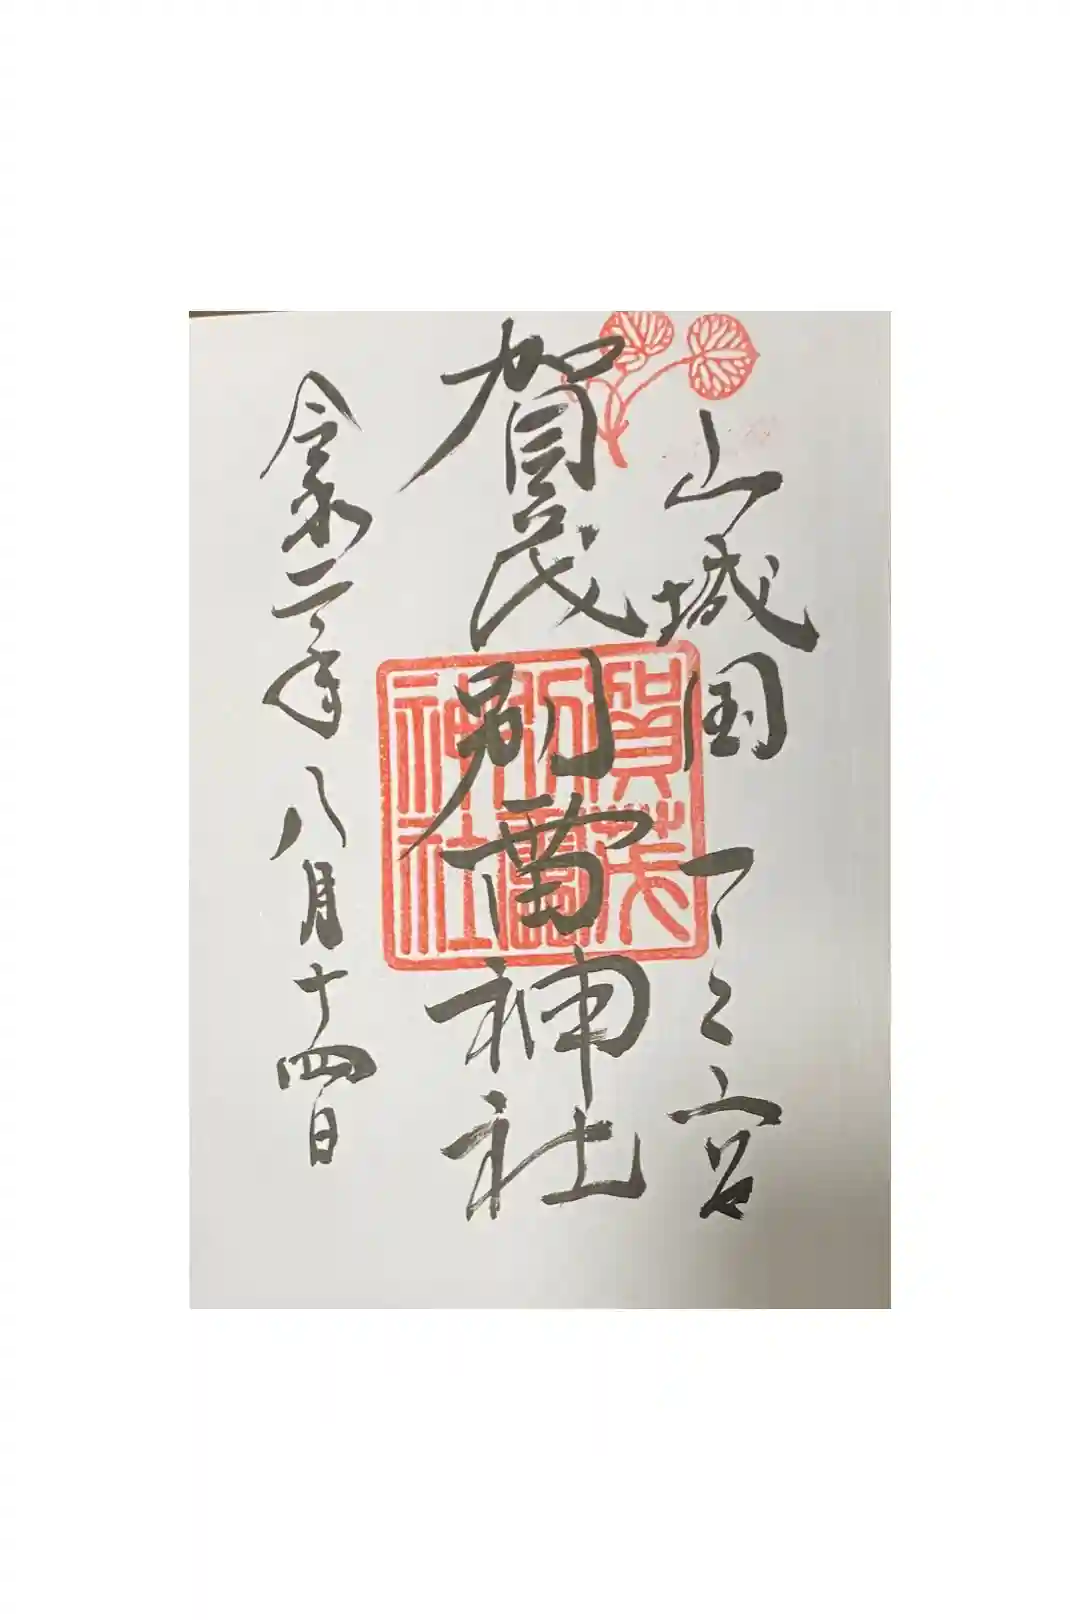 山城国一之宮
賀茂別雷神社
令和二年八月十四日
賀茂
別雷
神社